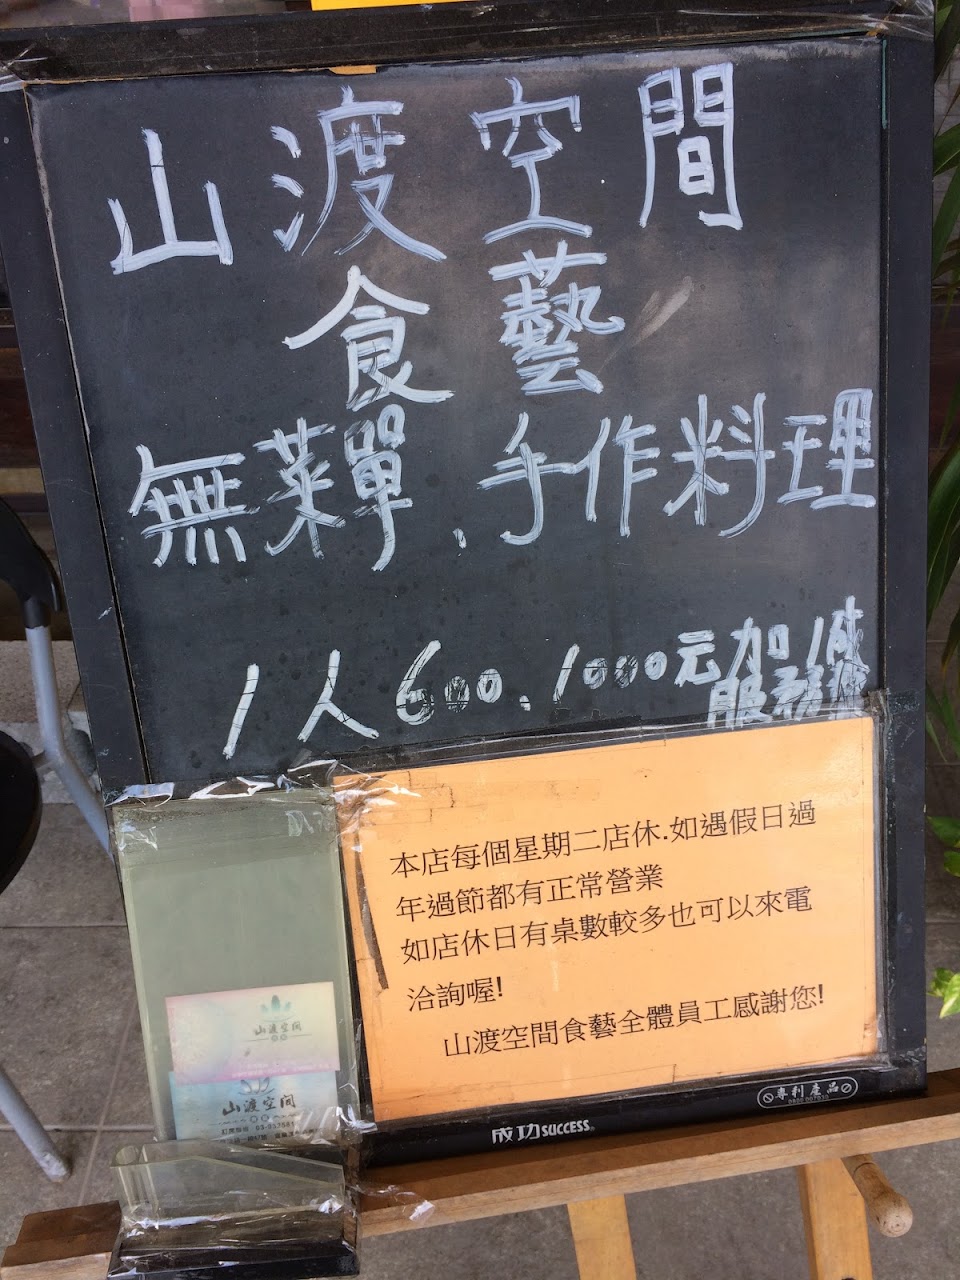 山渡空間
食藝
無菜單、手作料理
1人600、1000元加1成
服務費
本店每個星期二店休.如遇假日過
年過節都有正常營業
如店休日有桌數較多也可以來電
洽詢喔!
山渡空間食藝全體員工感謝您!
山渡空間
山渡空間
專利產品
成功SUCCESS